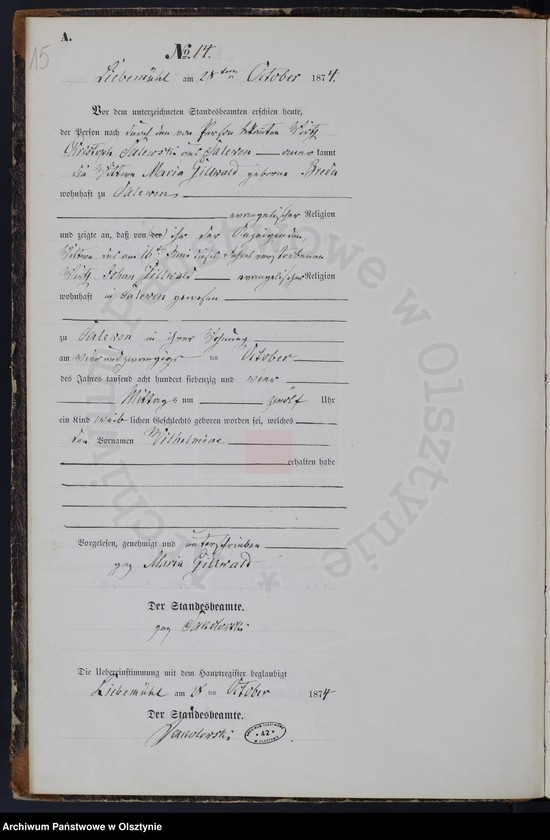 A.
15
No. 14.
Liebemühl am 28ten October 1874.
Vor dem unterzeichneten Standesbeamten erschien heute,
der Person nach durch den von Person bekannten Wirth
Christoph Salewski aus Salewen anerkannt
die Wittwe Maria Gillwald geborne Breda
wohnhaft zu Salewen,
evangelischer Religion
und zeigte an, daß von der ihr der Anzeigenden,
Wittwe des am 16ten Juni dieses Jahres verstorbenen
Wirth Johan Gillwald evangelischer Religion
wohnhaft in Salewen gewesen
zu Salewen in ihrer Wohnung
am vierundzwanzigs ten October
des Jahres tausend acht hundert siebenzig und vier
Mittags um zwölf Uhr
ein Kind weiblichen Geschlechts geboren worden sei, welches
den Vornamen Wilhelmine
erhalten habe
Vorgelesen, genehmigt und unterschrieben
gez Maria Gillwald
Der Standesbeamte.
gez Sakolowski
Die Uebereinstimmung mit dem Hauptregister beglaubigt
Liebemühl am 28 ten October 1874
Der Standesbeamte.
ARCHIWUM PAŃSTWOWE
* 42 *
W OLSZTYNIE
Archiwum Państwowe w Olsztynie
Archiwum Państwowe w Olsztynie